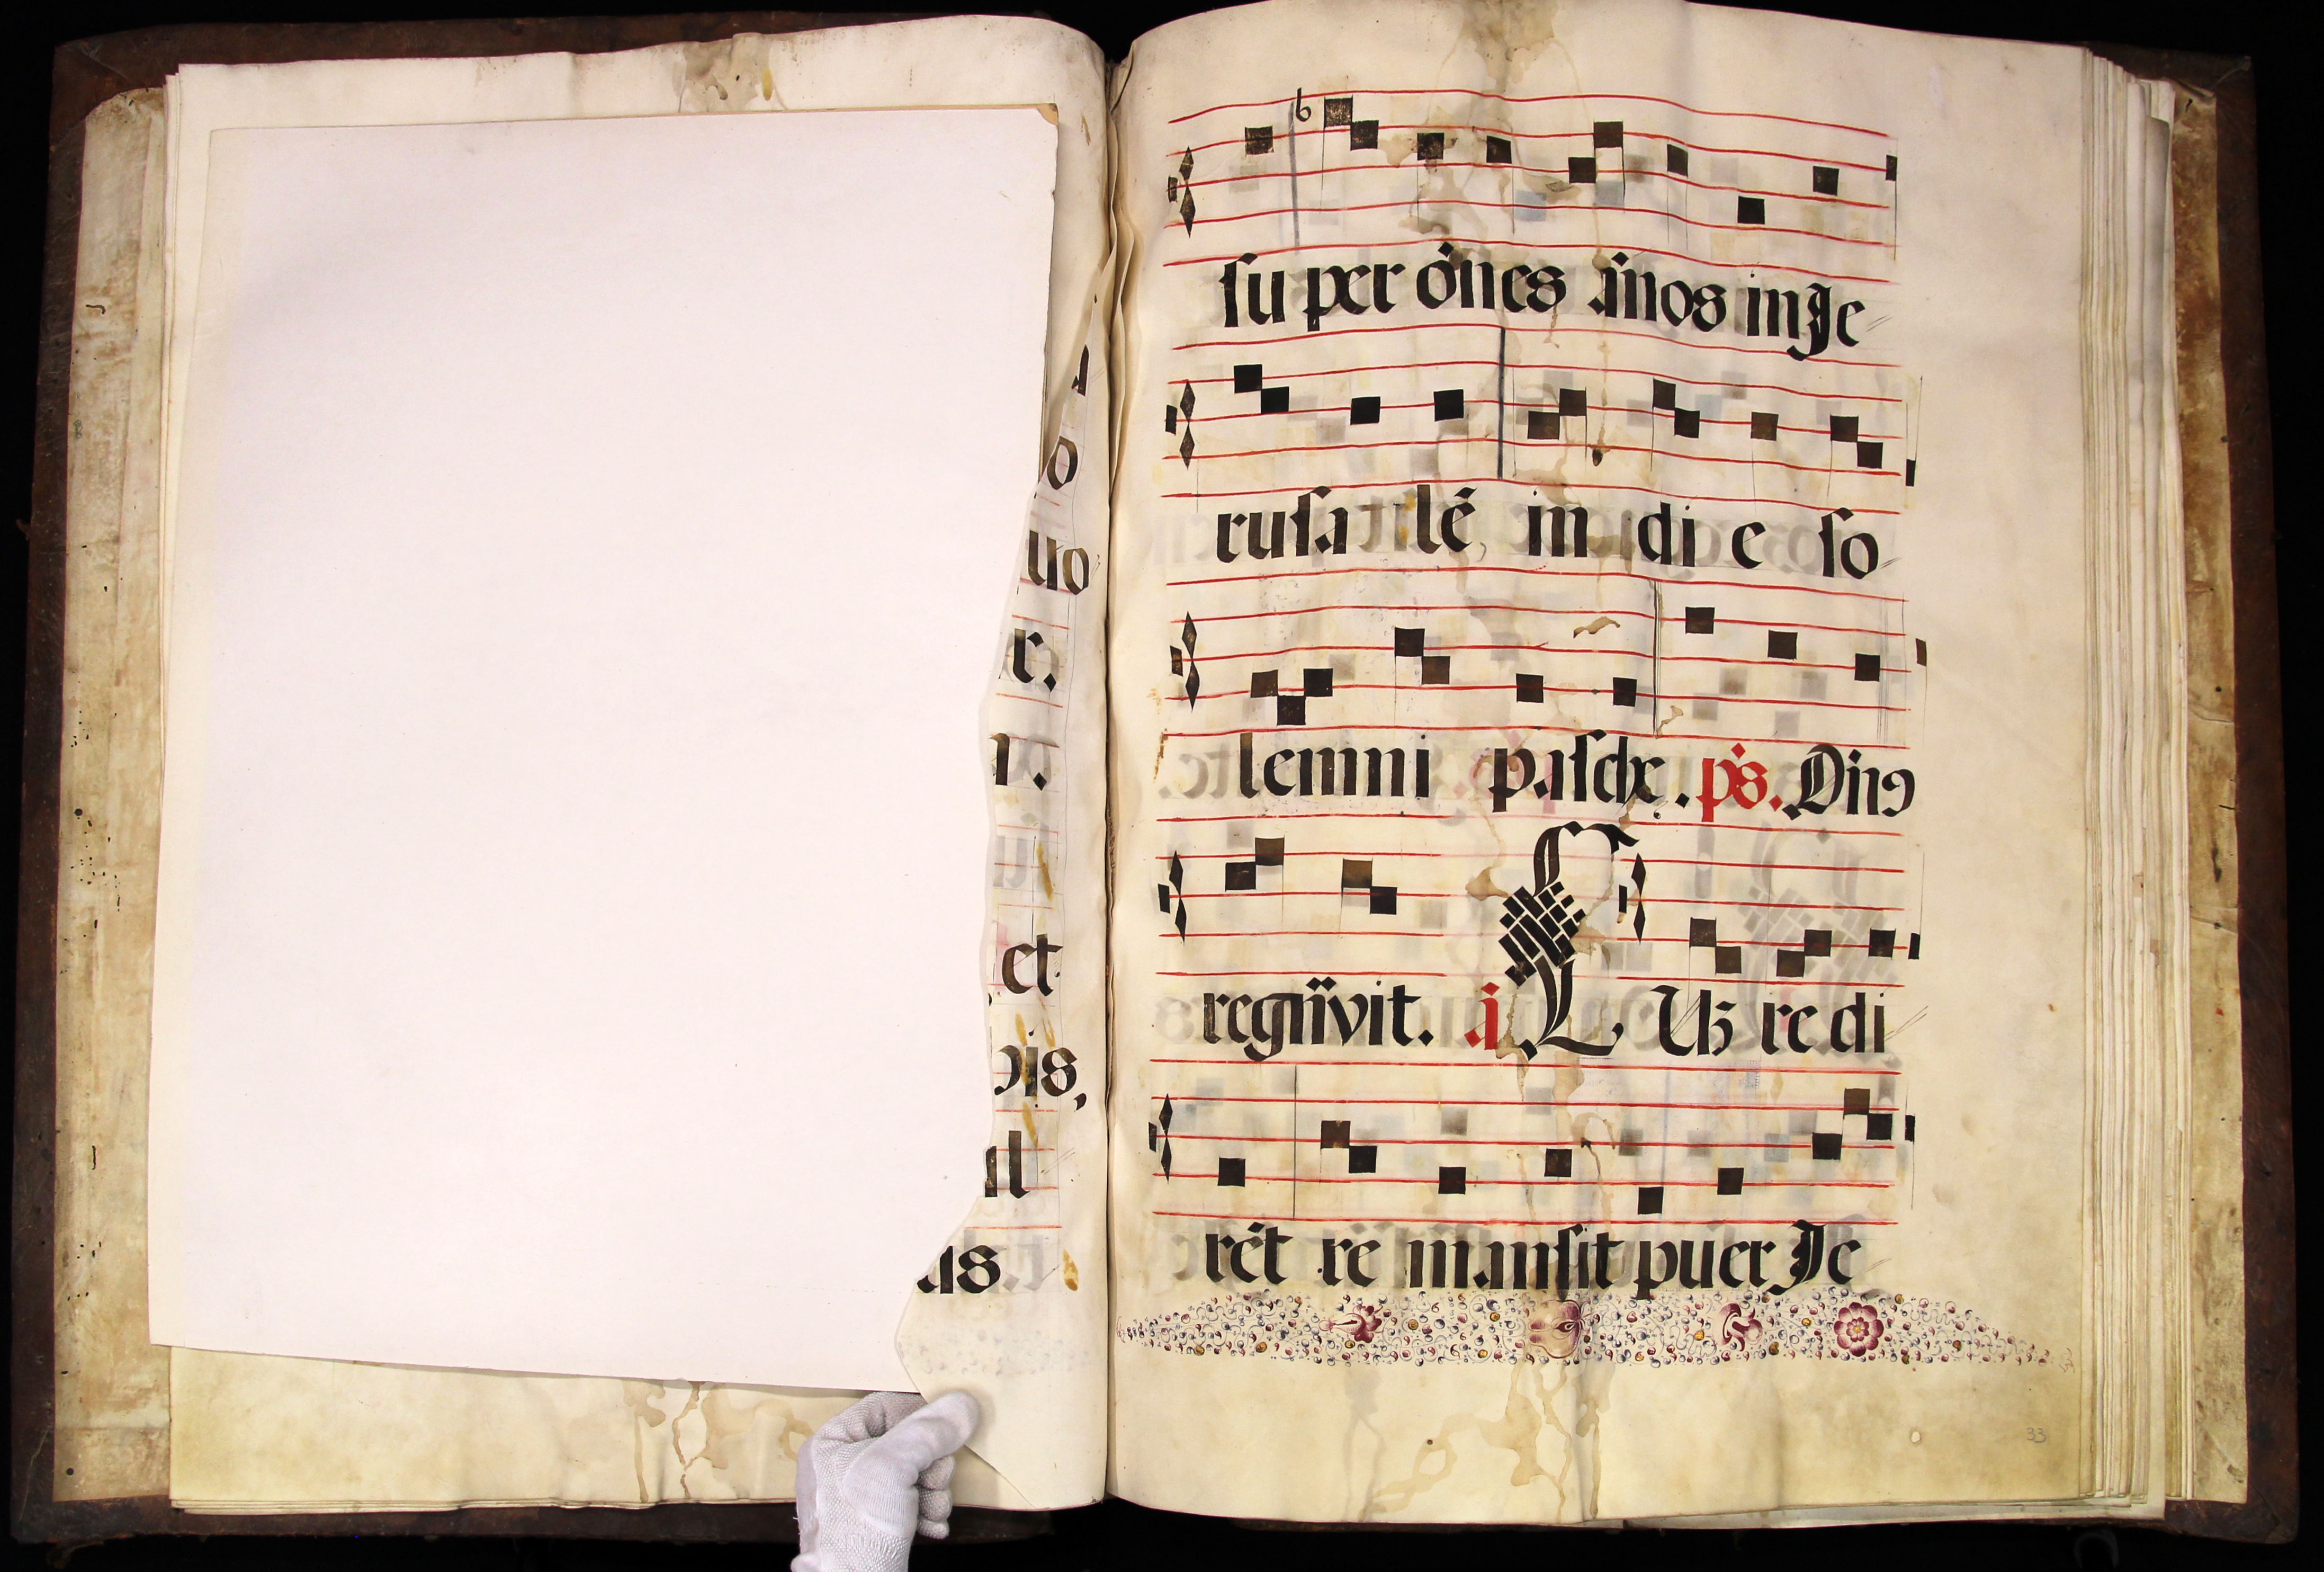 uo
r.
et
us
su per ōnes ānos in Je
rusa lē in di e so
lemni pasche. ps. Dn̄s
regnavit. a Cūz re di
rēt re mansit puer Je
33